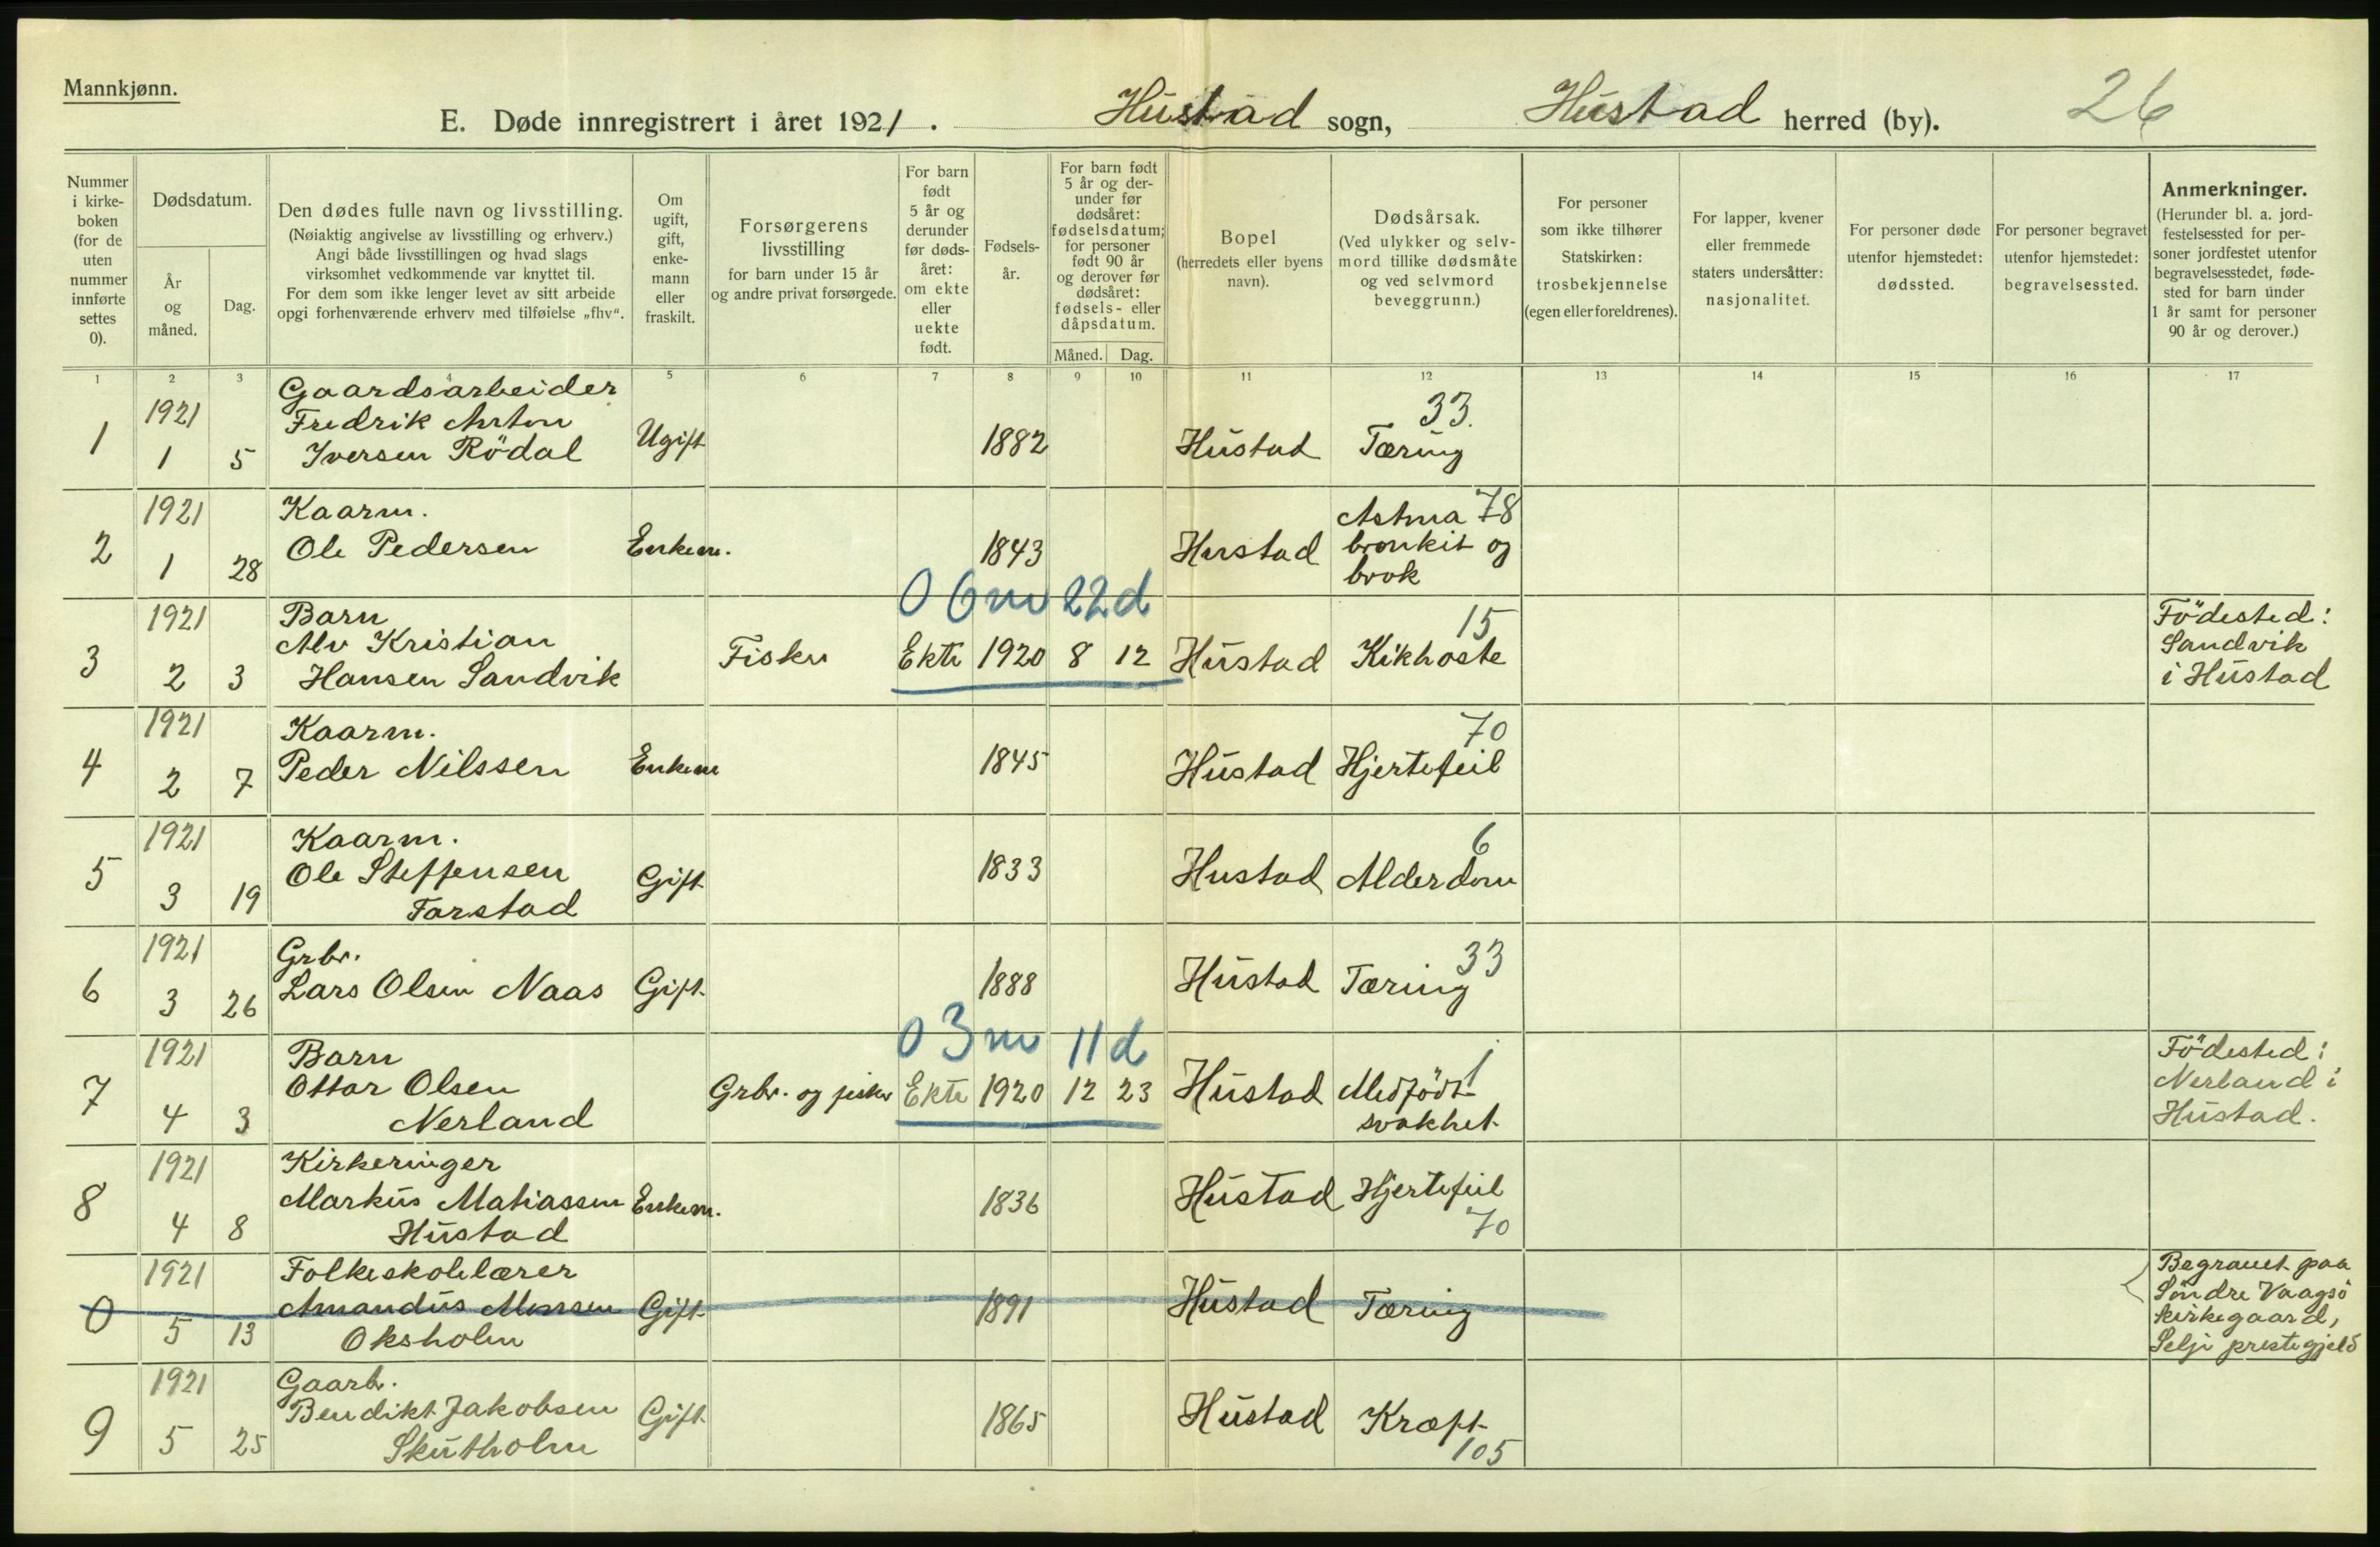 Mannkjønn.
E. Døde innregistrert i året 1921. Hustad sogn, Hustad herred (by). 26
Nummer
i kirke-
boken
(for de
uten
nummer
innførte
settes
0).
Dødsdatum.
År
og
måned.
Dag.
Den dødes fulle navn og livsstilling.
(Nøiaktig angivelse av livsstilling og erhverv.)
Angi både livsstillingen og hvad slags
virksomhet vedkommende var knyttet til.
For dem som ikke lenger levet av sitt arbeide
opgi forhenværende erhverv med tilføielse „fhv“.
Om
ugift,
gift,
enke-
mann
eller
fraskilt.
Forsørgerens
livsstilling
for barn under 15 år
og andre privat forsørgede.
For barn
født
5 år og
derunder
før døds-
året:
om ekte
eller
uekte
født.
Fødsels-
år.
For barn født
5 år og der-
under før
dødsåret:
fødselsdatum;
for personer
født 90 år
og derover før
dødsåret:
fødsels- eller
dåpsdatum.
Måned. Dag.
Bopel
(herredets eller byens
navn).
Dødsårsak.
(Ved ulykker og selv-
mord tillike dødsmåte
og ved selvmord
beveggrunn.)
For personer
som ikke tilhører
Statskirken:
trosbekjennelse
(egen eller foreldrenes).
For lapper, kvener
eller fremmede
staters undersåtter:
nasjonalitet.
For personer døde
utenfor hjemstedet:
dødssted.
For personer begravet
utenfor hjemstedet:
begravelsessted.
Anmerkninger.
(Herunder bl. a. jord-
festelsessted for per-
soner jordfestet utenfor
begravelsesstedet, føde-
sted for barn under
1 år samt for personer
90 år og derover.)
1 2 3 4 5 6 7 8 9 10 11 12 13 14 15 16 17
1921 Gaardsarbeider 33.
1 Fredrik Anton Ugift 1882 Hustad Tæring
1 5 Iversen Rödal
1921 Kaarm. Astma 78
2 Ole Pedersen Enkem. 1843 Hustad bronkit og
1 28 brok
0 6m 22d
1921 Barn 15 Födested:
3 Alv Kristian Fisker Ekte 1920 8 12 Hustad Kikhoste Sandvik
2 3 Hansen Sandvik i Hustad
1921 Kaarm. 70
4 Peder Nilssen Enkem 1845 Hustad Hjertefeil
2 7
1921 Kaarm. 6
5 Ole Steffensen Gift 1833 Hustad Alderdom
3 19 Farstad
1921 Grbr. 33
6 Lars Olsen Naas Gift 1888 Hustad Tæring
3 26
0 3m 11d
1921 Barn 1 Födested:
7 Ottar Olsen Grbr. og fisker Ekte 1920 12 23 Hustad Medfödt Nerland i
4 3 Nerland svakhet Hustad.
1921 Kirkeringer
8 Markus Matiassen Enkem. 1836 Hustad Hjertefeil
4 8 Hustad 70
1921 Folkeskolelærer Begravet paa
0 Amandus Gift 1891 Hustad Tæring Söndre Vaagsö
5 13 Oksholm kirkegaard,
Selje prestegjeld
1921 Gaarb.
9 Bendikt Jakobsen Gift 1865 Hustad Kræft
5 25 Skutholm 105